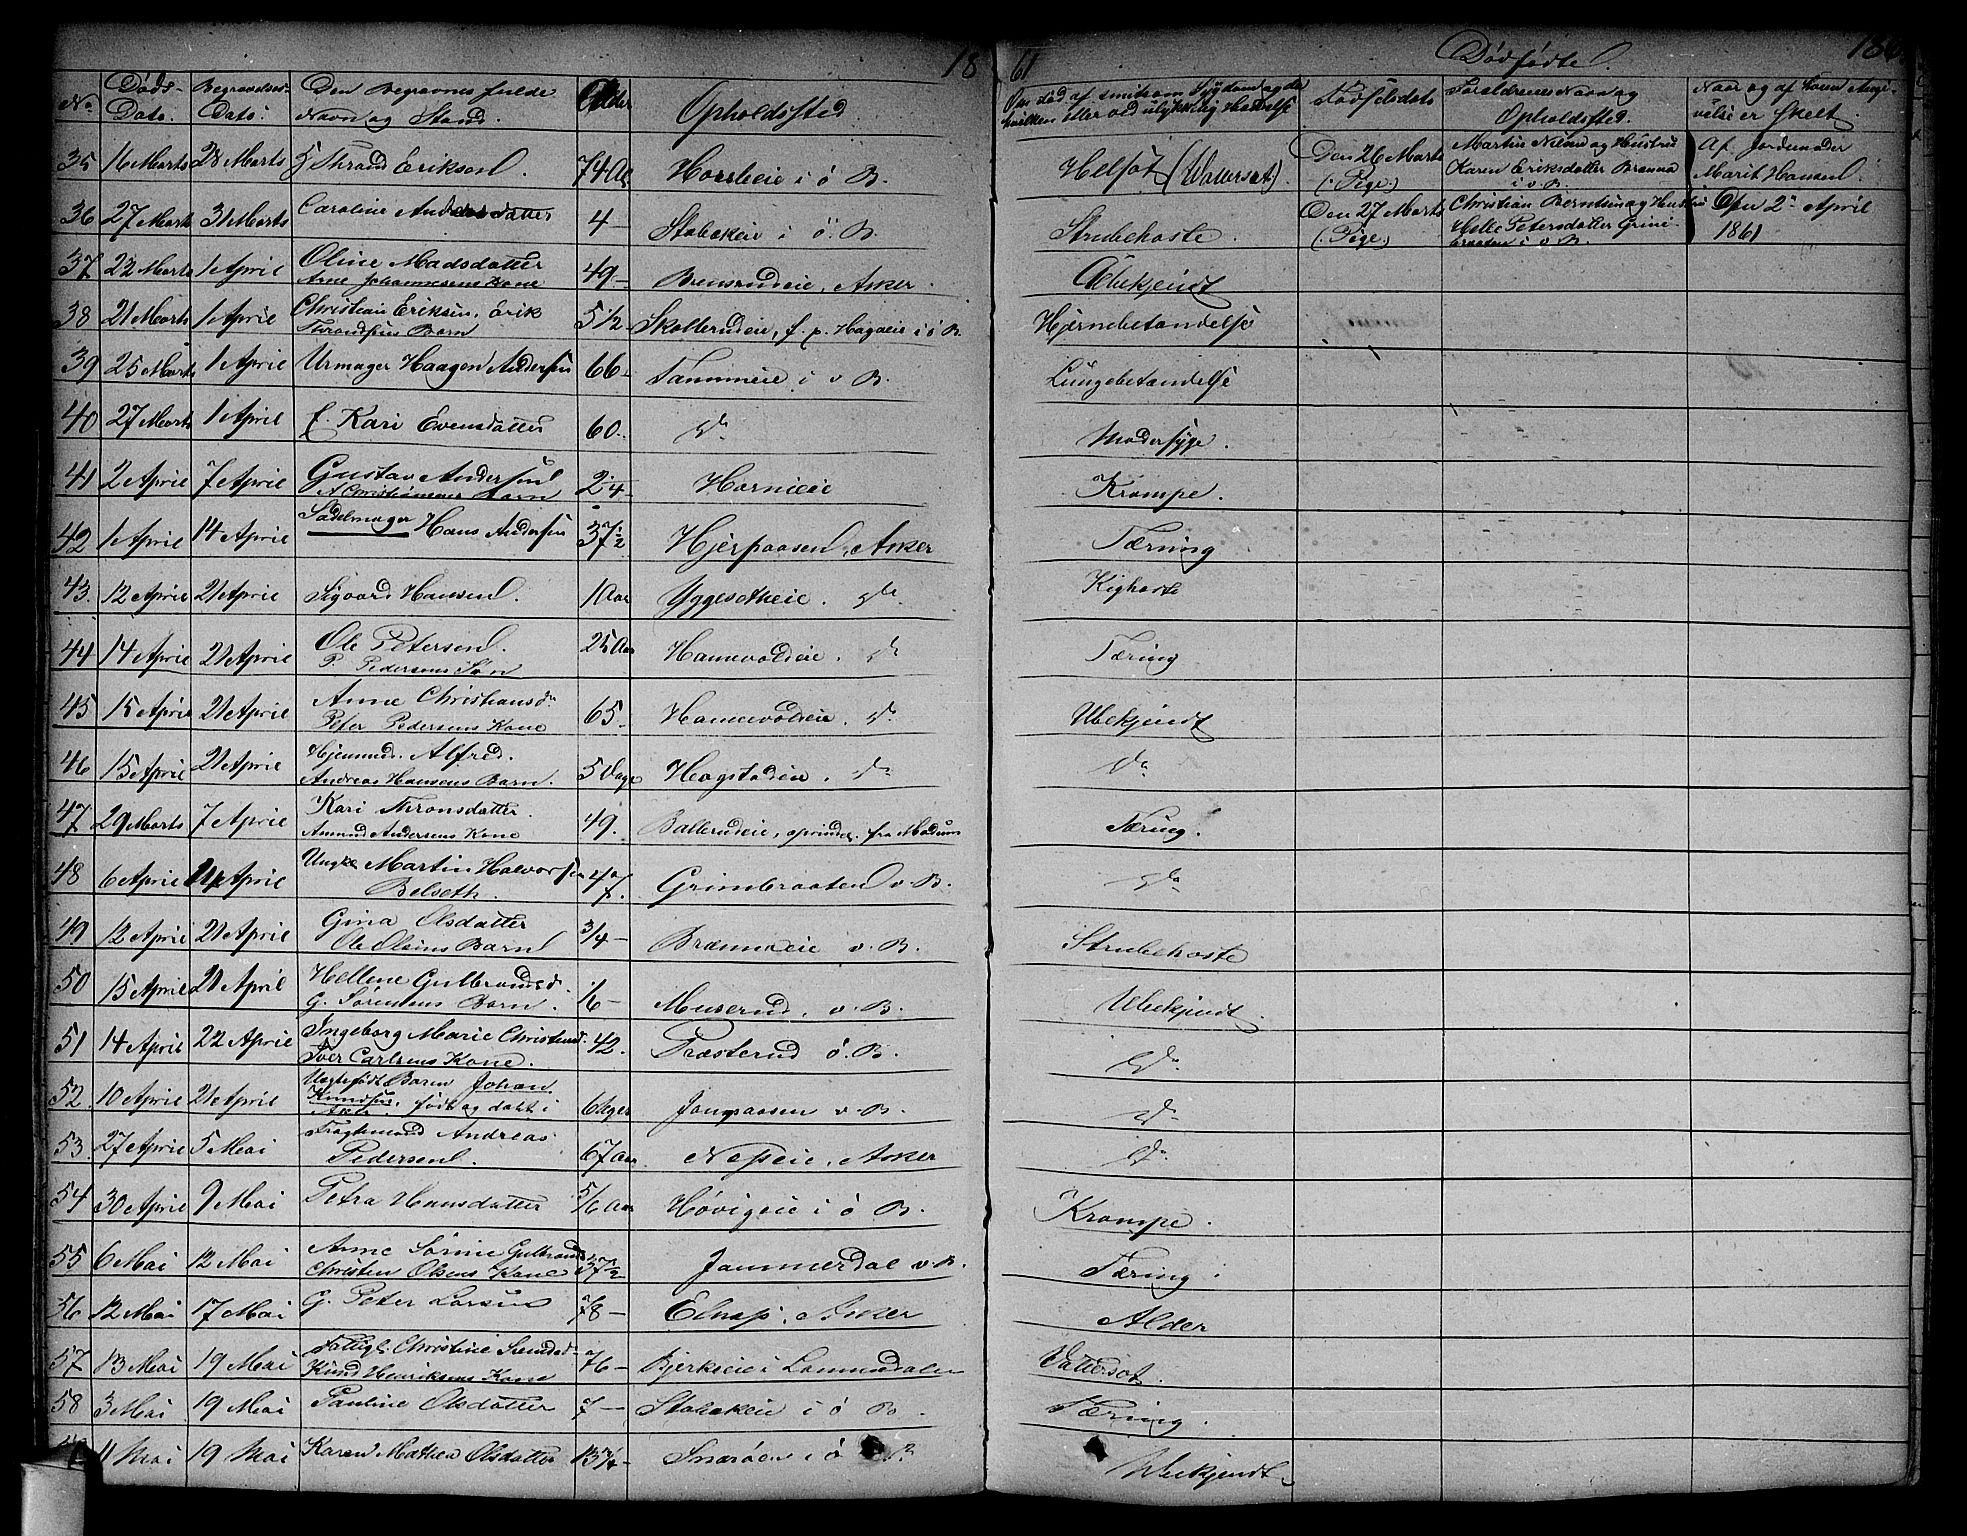 18 61
Dødfødte.
No. Døds-Dato. Begravelses-Dato. Den Begravnes fulde Navn og Stand. Alder Opholdssted. Om død af smitsom Sygdom og da hvilken eller ved ulykkelig Hændelse Fødselsdato Forældrenes Navn og Opholdssted. Naar og af hvem Angivelse er skeet.
35 16 Marts 28 Marts Thrond Eriksen. 74 Aar i ö B. Helsot (Vatersot) Den 26 Marts (: Pige.) Martin Nilsen og Hustru Karen Eriksdatter Brenna i v. B. Af Jordmoder Marit Hansen.
36 27 Marts 31 Marts Caroline Andersdatter 4 — Stabækeie i ö. B. Strubehoste. Den 27 Marts (: Pige.) Christian Berntsen og Hustru Helle Petersdatter Grini-braaten i v. B. Den 2 April 1861
37 22 Marts 1 April Oline Madsdatter Arne Johannesens Kone 49 — Brensrudeie, Asker. Ubekjendt
38 21 Marts 1 April Christian Eriksen, Erik Throndsens Barn 5 1/2 Skollerudeie, f. p. Hagaeie i ö B. Hjernebetændelse
39 25 Marts 1 April Urmager Haagen Andersen 66 — Tanumeie i v B. Lungebetændelse
40 27 Marts 1 April f. Kari Evensdatter 60. do Modersyge.
41 2 April 7 April Gustav Andersen A. Christiansens Barn 2 1/4 Hornieie Krampe.
42 1 April 14 April Sadelmager Hans Andersen 37 1/2 Hjerpaasen, Asker Tæring
43. 12 April 21 April Sigvard Hansen. 1 Aar Yggesetheie. do. Kighoste
44 14 April 21 April Ole Petersen. P. Pedersens Søn 25 Aar Hanevoldeie. do Tæring
45 15 April 21 April Anne Christiansdr Peter Pedersens Kone 65. Hanevoldeie. do. Ubekjendt
46 15 April 21 April Hjemmed. Alfred. Andreas Hansens Barn. 5 Dage Hogstadeie. do do
47 29 Marts 7 April Kari Thronsdatter. Amund Andersens Kone 49. Ballerudeie, oprindel. fra Modum Tæring.
48 6 April 14 April Ungk. Martin Halvorsen Belseth. 47. Grimbraaten v. B. do
49 12 April 21 April Gina Olsdatter Ole Olsens Barn 3/4 — Brennaeie v. B. Strubehoste
50 15 April 21 April Hellene Gulbrandsd. G. Sørensens Barn. 1/6 — Muserud. v. B. Ubekjendt
51 14 April 22 April Ingeborg Marie Christensd. Iver Carlsens Kone. 42. Præsterud ö. B. do
52. 10 April 21 April Uægtefødt Barn Johan Knudsen. født og døbt i Asker 6 Uger Jongsaasen v. B. do
53 27 April 5 Mai Fragtemand Andreas Pedersen. 67 Aar Neseie, Asker do
54 30 April 9 Mai Petra Hansdatter 5/6 Aar Høvigeie i ö B. Krampe.
55 6 Mai 12 Mai Anne Sørine Gulbrandsd. Christen Olsens Kone 37 1/2 Jammerdal v. B. Tæring.
56 12 Mai 17 Mai G. Peter Larsen 78 — Elnæs, Asker Alder
57 13 Mai 19 Mai Fattigl. Christine Knud Henriksens Kone 76 — Bjerkeeie i Lommedalen Vattersot.
58 3 Mai 19 Mai Pauline Olsdatter 7 — Stabækeie i ö B. Tæring.
11 Mai 19 Mai Karen Mathea Olsdatter 13 3/4 — Snarøen i ö B. Ubekjendt